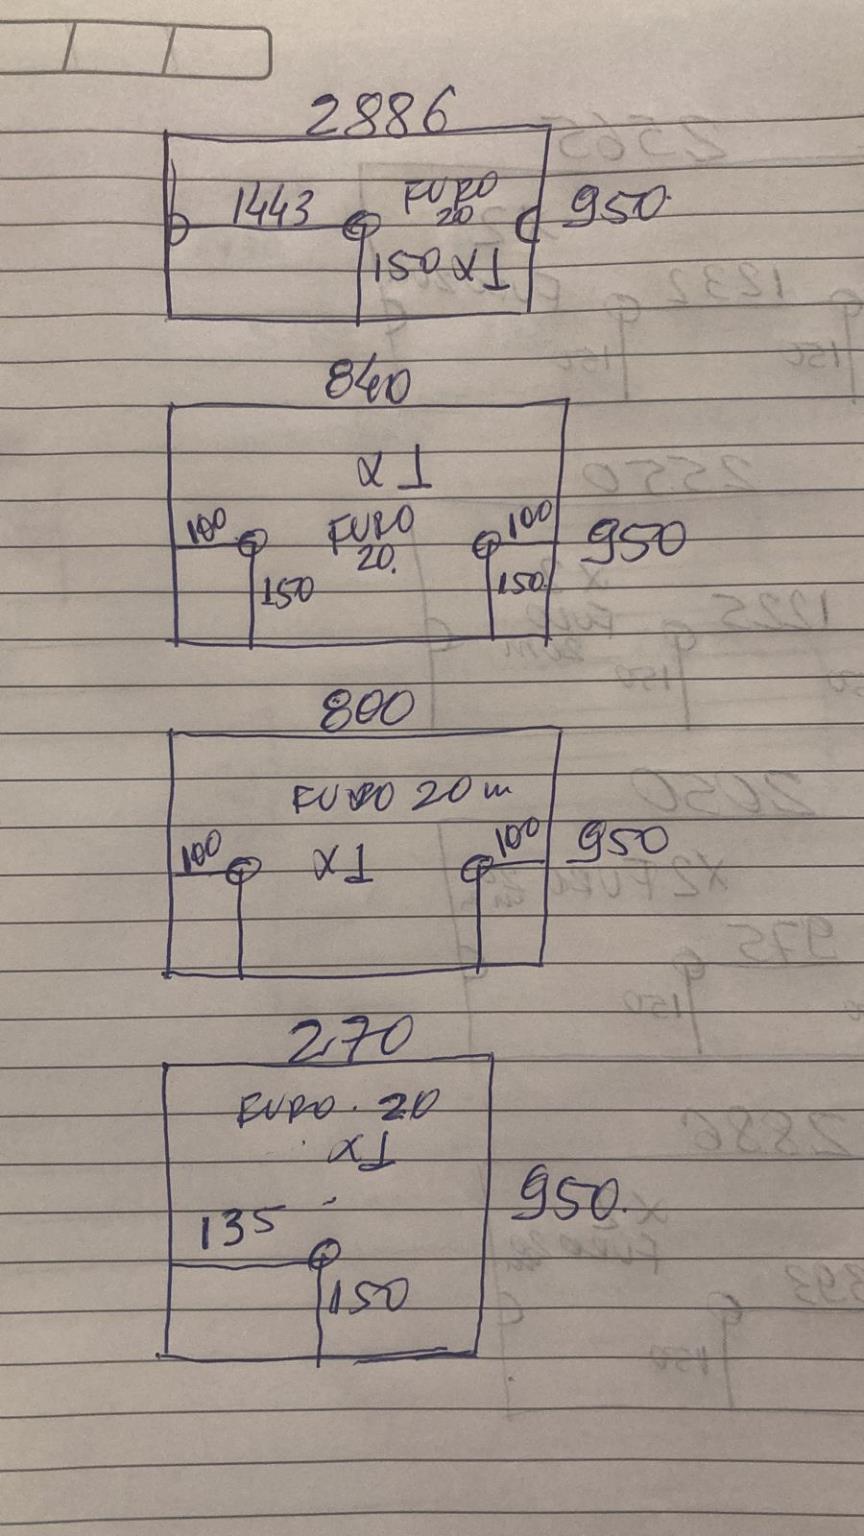 2886
1443 FURO 950.
20
150 X1
840
X1
100 FURO 100 950
20.
150 150
800
FURO 20m
100 X1 100 950
270
FURO. 20
X1
950.
135
150